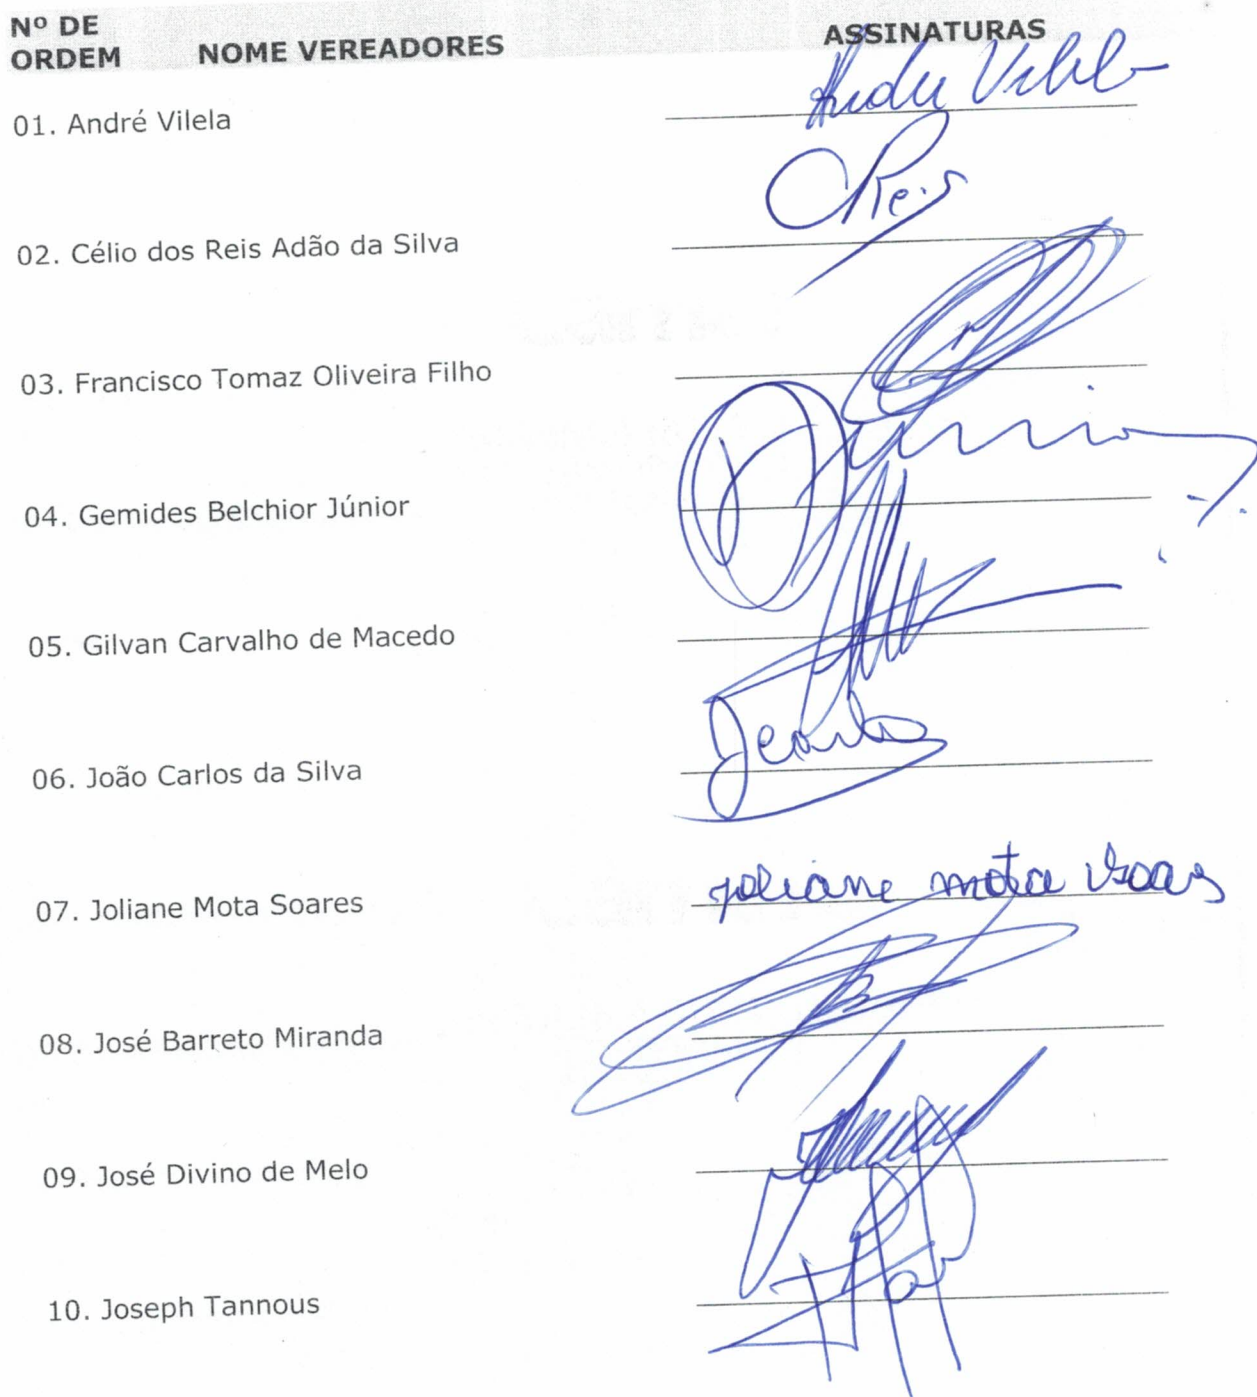 Nº DE
ORDEM NOME VEREADORES ASSINATURAS
01. André Vilela
Reis
02. Célio dos Reis Adão da Silva
03. Francisco Tomaz Oliveira Filho
04. Gemides Belchior Júnior
05. Gilvan Carvalho de Macedo
06. João Carlos da Silva
07. Joliane Mota Soares Joliane mota Soares
08. José Barreto Miranda
09. José Divino de Melo
10. Joseph Tannous